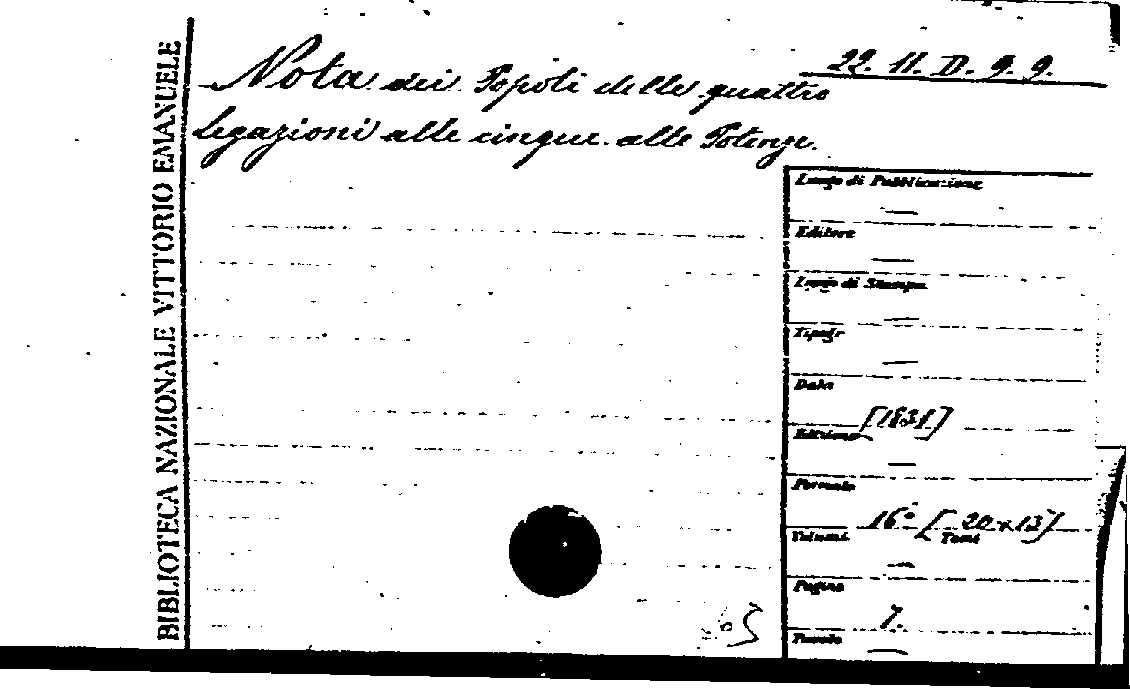 BIBLIOTECA NAZIONALE VITTORIO EMANUELE
22. 11. D. 9. 9.
Nota dei Popoli delle quattro
Legazioni alle cinque alte Potenze.
Luogo di Pubblicazione
—
Editore
—
Luogo di Stampa
—
Tipogr
—
Data
[1831]
Edizione
—
Formato
16° [20x13]
Volumi Tomi
—
Pagine
7.
Tavole
—